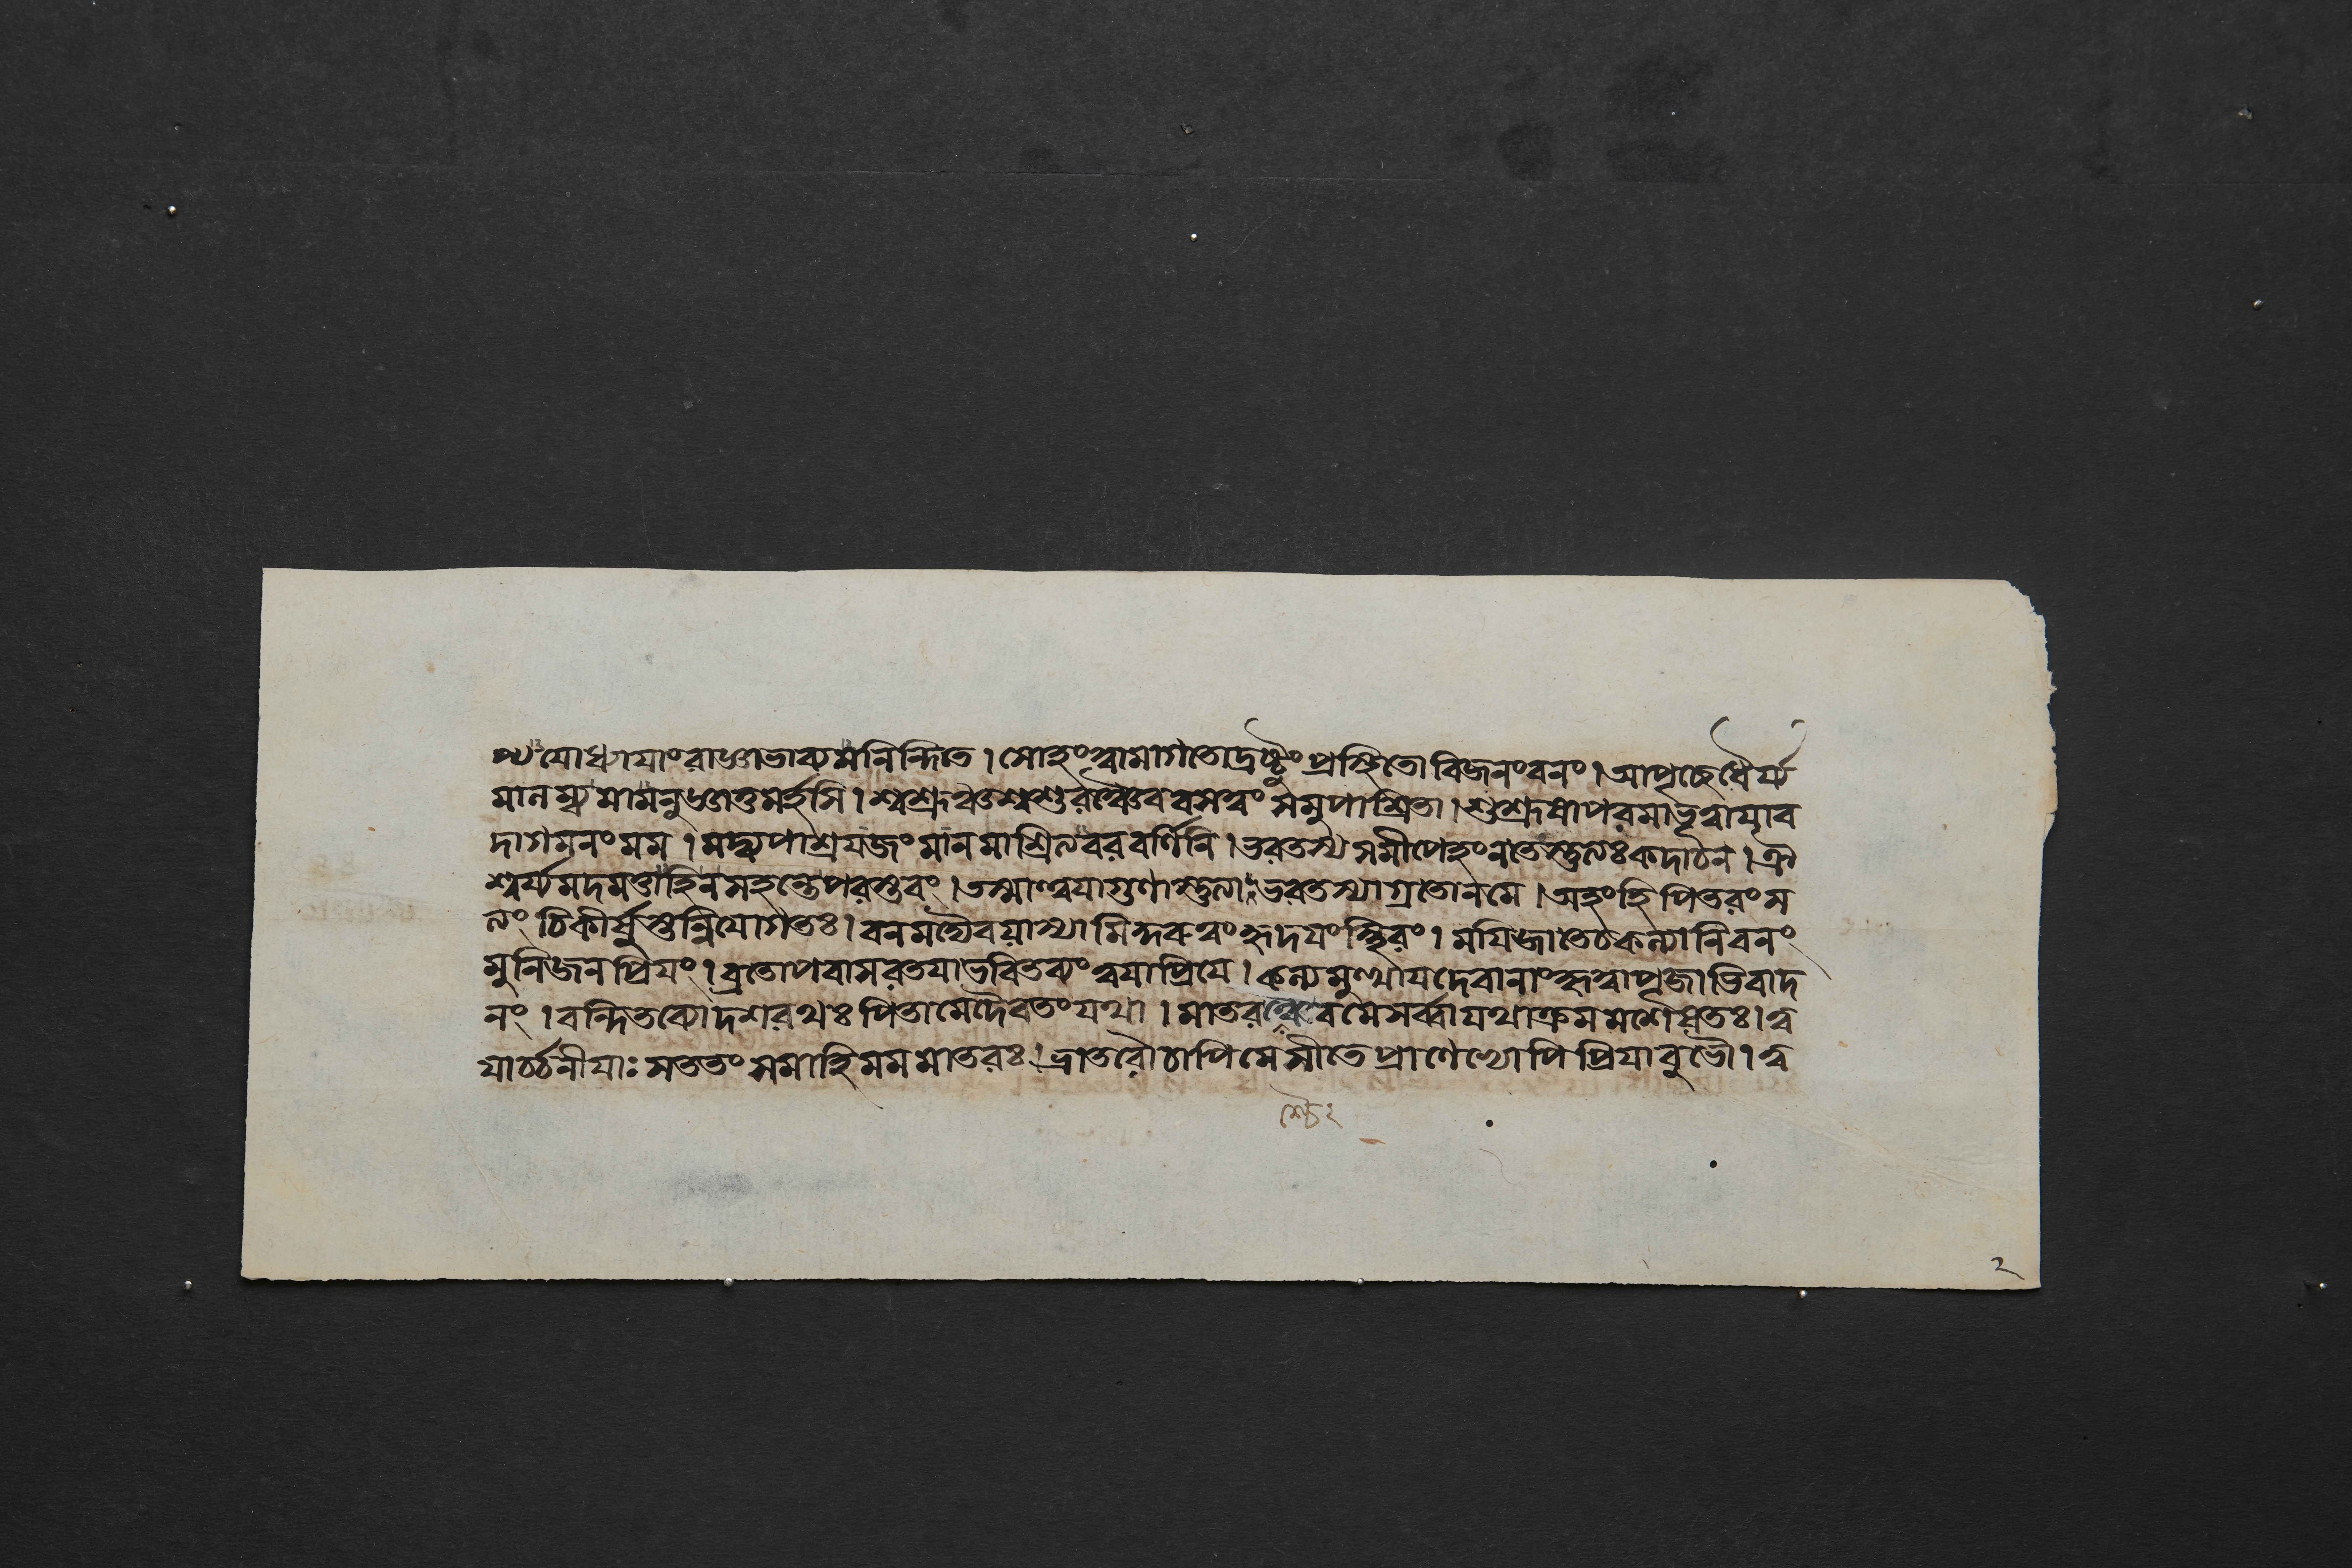 ণ্যমযোধ্যাযাংরাজ্ঞাভাব্যমনিন্দিতে। সোহংত্বামাগতোদ্রষ্টুংপ্রস্থিতোবিজনংবনং। আপৃচ্ছেধৈর্য্য
মালম্ব্যমামনুজ্ঞাতুমর্হসি। শ্বশ্রূশ্বশুরঞ্চৈববসত্বংসমুপাশ্রিতা। শুশ্রূষাপরমাভূত্বাযাব
দাগমনংমম। মদ্ব্যপাশ্রযজংমানমাশ্রিত্যবরবর্ণিনি। ভরতস্যসমীপেহংনতেস্তুত্যঃকদাচন। ঐ
শ্বর্য্যমদমত্তাহিনসহন্তেপরস্তবং। তস্মাত্ত্বযাগুণাস্তুত্যাভরতস্যাগ্রতোনমে। অহংহিপিতরংস
ত্যংচিকীর্ষুস্তন্নিযোগতঃ। বনমদ্যৈবযাস্যামিকুরুত্বংহৃদযংস্থিরং। মযিজাতেচকল্যাণিবনং
মুনিজনপ্রিযং। ব্রতোপবাসরতযাভবিতব্যংত্বযাপ্রিযে। কল্যমুত্থাযদেবানাংকৃত্বাপূজাভিবাদ
নং। বন্দিতব্যোদশরথঃপিতামেদৈবতংযথা। মাতরশ্চৈবমেসর্ব্বাযথাক্রমমশেষতঃ। ত্ব
যার্চ্চনীযাঃসততংসমাহিমমমাতরঃ। ভ্রাতরৌচাপিমেসীতেপ্রাণেভ্যোপিপ্রিযাবুভৌ। ত্ব
২